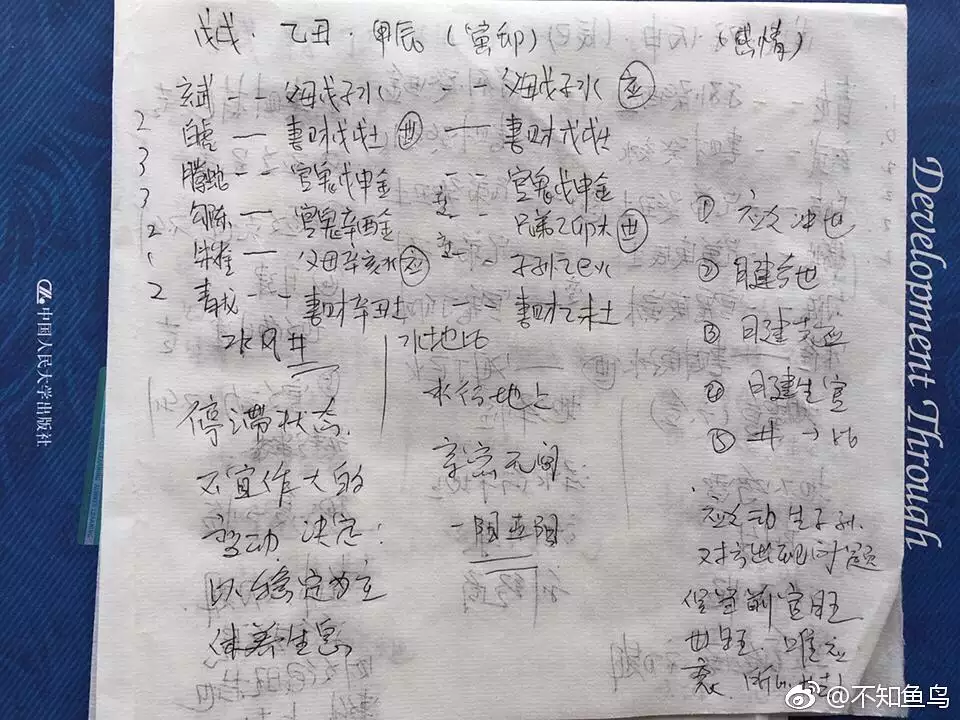 戊戌·乙丑·甲辰(寅卯) (感情)
玄武 -- 父母戊子水 -- 父母戊子水 应
2 白虎 — 妻财戊戌土 世 — 妻财戊戌土
3 腾蛇 -- 官鬼戊申金 -- 官鬼戊申金
3 勾陈 — 官鬼辛酉金 -- 兄弟乙卯木 世
2 朱雀 — 父母辛亥水 应 -- 子孙乙巳火
2 青龙 -- 妻财辛丑土 -- 妻财乙未土
水风井
水地比
停滞状态
不宜作大的
变动 决定:
以稳定为主
休养生息
水行地上
亲密无间
① 应爻冲世
② 月建合世
③ 月建克应
④ 月建生官
⑤ 井→比
应爻动生子孙
世旺
中国人民大学出版社
Development Through
@不知鱼鸟